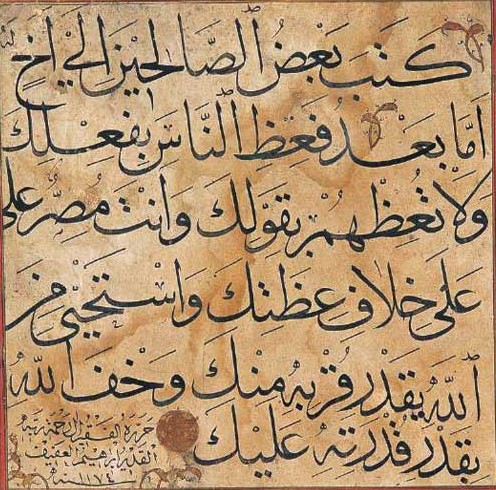 كتب بعض الصالحين الى اخ له
اما بعد فعظ الناس بفعلك
ولا تعظهم بقولك وانت مصر على
على خلاف عظتك واستحيي من
الله بقدر قربه منك وخف الله
بقدر قدرته عليك
حرره الفقير الى رحمة ربه
القدير ابراهيم العفيف
سنة ١١٧٤